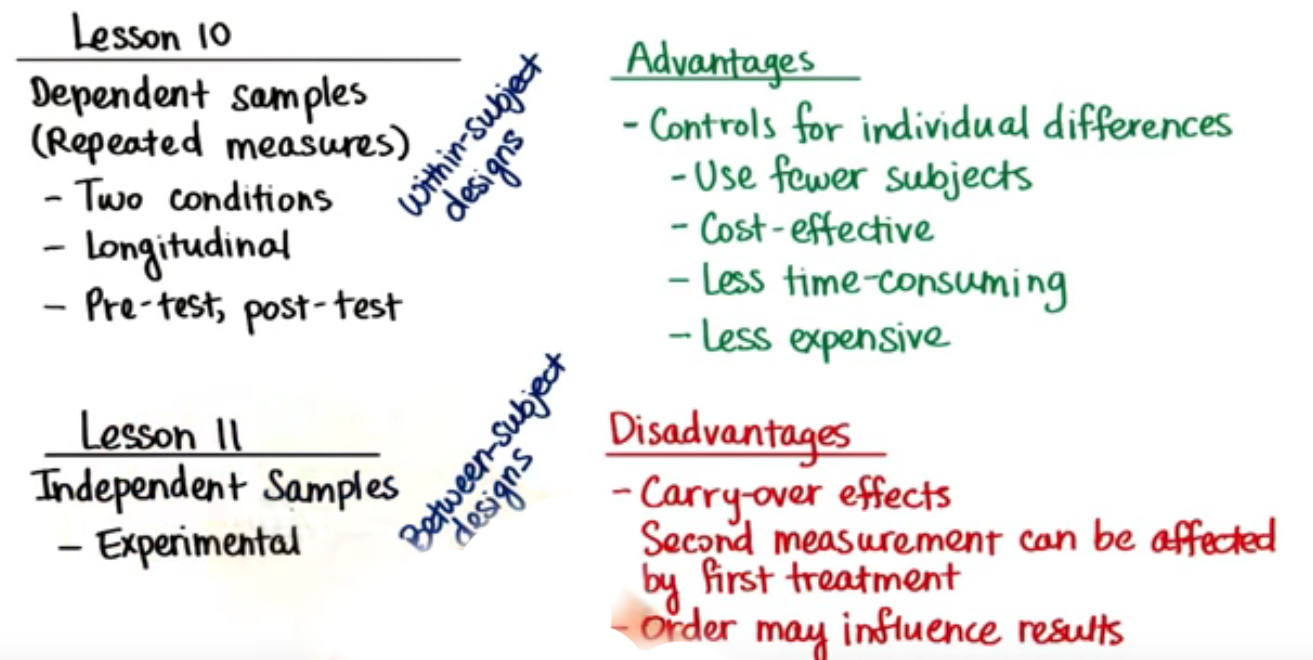 Lesson 10
Dependent samples
(Repeated measures)
- Two conditions
- Longitudinal
- Pre-test, post-test
Within-subject
designs
Lesson 11
Independent Samples
- Experimental
Between-subject
designs
Advantages
- Controls for individual differences
- Use fewer subjects
- Cost-effective
- Less time-consuming
- Less expensive
Disadvantages
- Carry-over effects
Second measurement can be affected
by first treatment
- Order may influence results